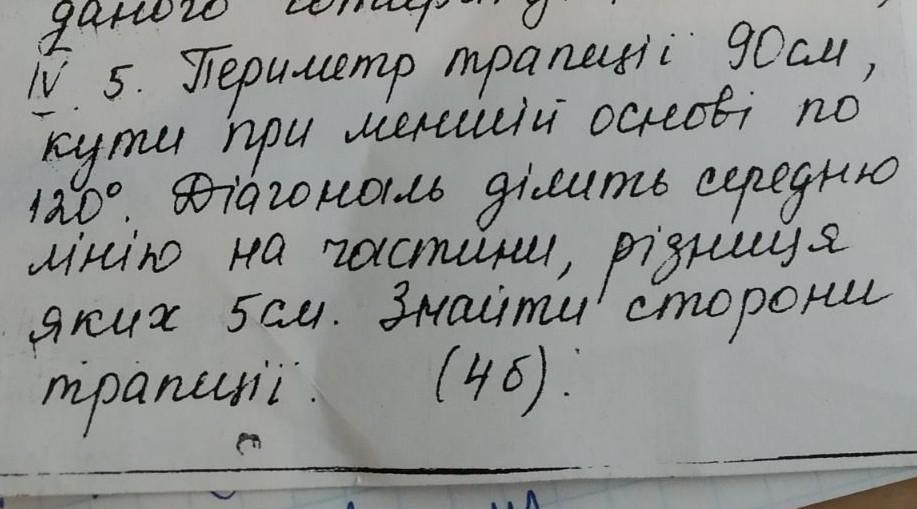 даного
IV 5. Периметр трапеції 90см,
кути при меншій основі по
120°. Діагональ ділить середню
лінію на частини, різниця
яких 5см. Знайти сторони
трапеції. (4б).